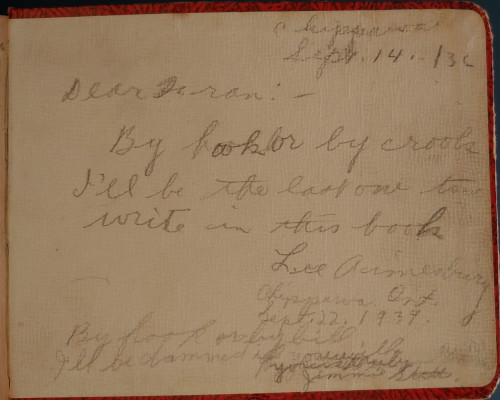 Chippawa
Sept. 14. -/36
Dear Doran: -
By hook or by crook
I'll be the last one to
write in this book
Lee Aimesbury
Chippawa. Ont.
Sept. 22. 1939.
By hook or by bill
I'll be damned if you will
Jimmie